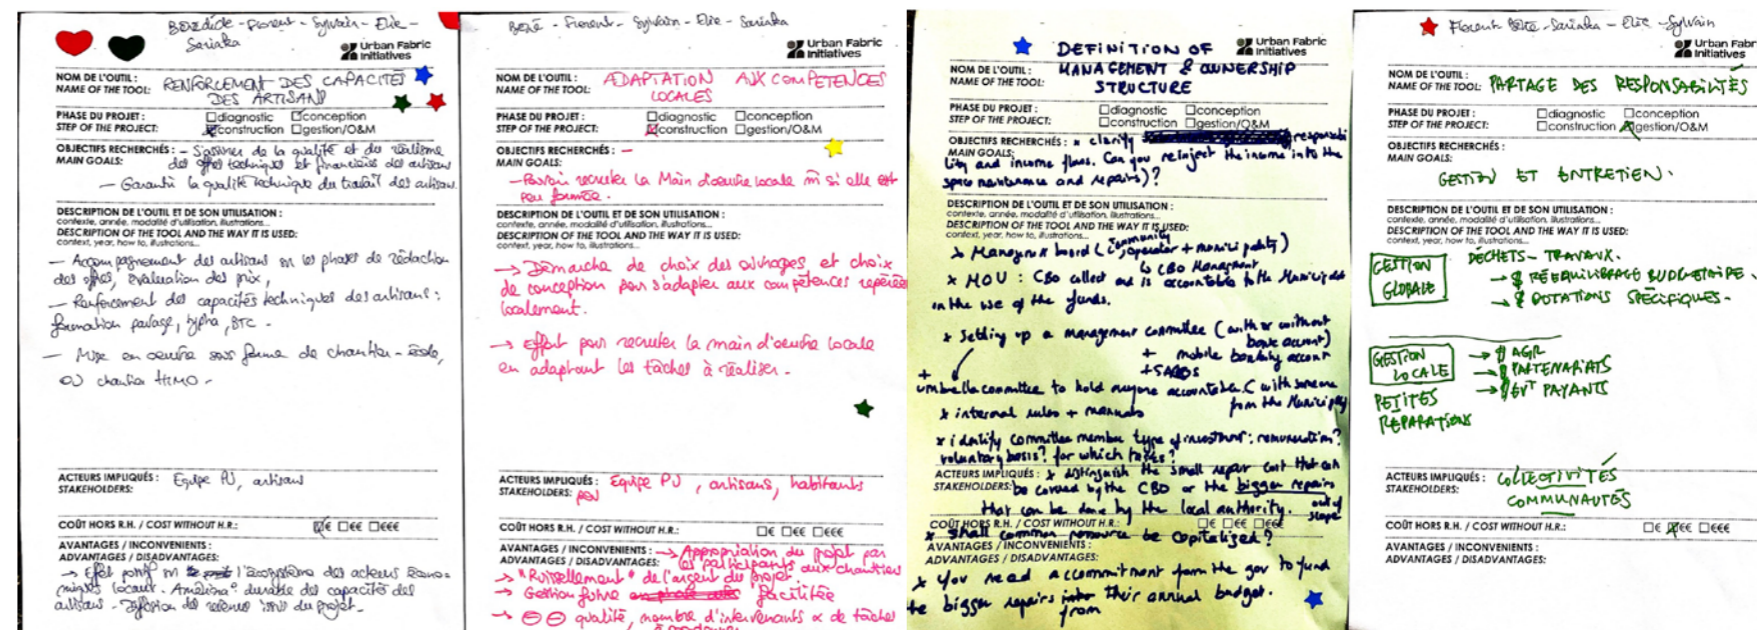 BENEDICTE - Florent - Sylvain - Elise -
Sariaka
Urban Fabric
Initiatives
NOM DE L'OUTIL :
NAME OF THE TOOL:
RENFORCEMENT DES CAPACITÉS
DES ARTISANS
PHASE DU PROJET :
STEP OF THE PROJECT:
☐diagnostic ☐conception
☒construction ☐gestion/O&M
OBJECTIFS RECHERCHÉS :
MAIN GOALS:
- S'assurer de la qualité et du réalisme
des offres techniques et financières des artisans
- Garantir la qualité technique du travail des artisans
DESCRIPTION DE L'OUTIL ET DE SON UTILISATION :
contexte, année, modalité d'utilisation, illustrations...
DESCRIPTION OF THE TOOL AND THE WAY IT IS USED:
context, year, how to, illustrations...
- Accompagnement des artisans sur les phases de rédaction
des offres, évaluation des prix,
- Renforcement des capacités techniques des artisans :
formation pavage, typha, BTC.
- Mise en oeuvre sous forme de chantier-école,
ou chantier HIMO.
ACTEURS IMPLIQUÉS :
STAKEHOLDERS:
Equipe PU, artisans
COÛT HORS R.H. / COST WITHOUT H.R.:
☒€ ☐€€ ☐€€€
AVANTAGES / INCONVENIENTS :
ADVANTAGES / DISADVANTAGES:
→ Effet positif sur l'écosystème des acteurs écono-
miques locaux. Amélioration durable des capacités des
artisans - Diffusion des savoirs issus du projet.
BÉNÉ - Florent - Sylvain - Elise - Sariaka
Urban Fabric
Initiatives
NOM DE L'OUTIL :
NAME OF THE TOOL:
ADAPTATION AUX COMPETENCES
LOCALES
PHASE DU PROJET :
STEP OF THE PROJECT:
☐diagnostic ☐conception
☒construction ☐gestion/O&M
OBJECTIFS RECHERCHÉS : -
MAIN GOALS:
- Pouvoir recruter la Main d'oeuvre locale m̂ si elle est
peu formée.
DESCRIPTION DE L'OUTIL ET DE SON UTILISATION :
contexte, année, modalité d'utilisation, illustrations...
DESCRIPTION OF THE TOOL AND THE WAY IT IS USED:
context, year, how to, illustrations...
→ Démarche de choix des ouvrages et choix
de conception pour s'adapter aux compétences repérées
localement.
→ Effort pour recruter la main d'oeuvre locale
en adaptant les tâches à réaliser.
ACTEURS IMPLIQUÉS :
STAKEHOLDERS:
Equipe PU, artisans, habitants
COÛT HORS R.H. / COST WITHOUT H.R.:
☐€ ☐€€ ☐€€€
AVANTAGES / INCONVENIENTS :
ADVANTAGES / DISADVANTAGES:
→ Appropriation du projet par
les participants aux chantiers
→ "Ruissellement" de l'argent du projet.
→ Gestion future facilitée
→ ⊖⊖ qualité, nombre d'intervenants & de tâches
DEFINITION OF
MANAGEMENT & OWNERSHIP
STRUCTURE
Urban Fabric
Initiatives
NOM DE L'OUTIL :
NAME OF THE TOOL:
PHASE DU PROJET :
STEP OF THE PROJECT:
☐diagnostic ☐conception
☐construction ☐gestion/O&M
OBJECTIFS RECHERCHÉS :
MAIN GOALS:
x clarify responsabi
lity and income flows. Can you reinject the income into the
space maintenance and repairs)?
DESCRIPTION DE L'OUTIL ET DE SON UTILISATION :
contexte, année, modalité d'utilisation, illustrations...
DESCRIPTION OF THE TOOL AND THE WAY IT IS USED:
context, year, how to, illustrations...
community
board ( operator + municipality)
↳ CBO Management
x MOU : CBO collect and is accountable to the Municipality
in the use of the funds.
x Setting up a management committee (with or without
bank account)
+ mobile banking account
+
umbrella committee to hold anyone accountable. ( with someone
from the Municipality
x internal rules + manuals
x identify committee member type of investment : remuneration?
voluntary basis? for which tasks?
ACTEURS IMPLIQUÉS :
STAKEHOLDERS:
x distinguish the small repair cost that can
be covered by the CBO or the bigger repairs
that can be done by the local authority.
out of
scope
COÛT HORS R.H. / COST WITHOUT H.R.:
☐€ ☐€€ ☐€€€
x Shall common resource be capitalized?
AVANTAGES / INCONVENIENTS :
ADVANTAGES / DISADVANTAGES:
x You need a commitment from the gov to fund
the bigger repairs from their annual budget.
Florent Béné - Sariaka - Elise - Sylvain
Urban Fabr
Initiatives
NOM DE L'OUTIL :
NAME OF THE TOOL:
PARTAGE DES RESPONSABILITÉS
PHASE DU PROJET :
STEP OF THE PROJECT:
☐diagnostic ☐conception
☐construction ☒gestion/O&M
OBJECTIFS RECHERCHÉS :
MAIN GOALS:
GESTION ET ENTRETIEN.
DESCRIPTION DE L'OUTIL ET DE SON UTILISATION :
contexte, année, modalité d'utilisation, illustrations...
DESCRIPTION OF THE TOOL AND THE WAY IT IS USED:
context, year, how to, illustrations...
GESTION
GLOBALE
DÉCHETS - TRAVAUX.
→ $ RÉÉQUILIBRAGE BUDGETAIRE.
→ $ DOTATIONS SPÉCIFIQUES.
GESTION
LOCALE
PETITES
REPARATIONS
→ $ AGR
→ $ PARTENARIATS
→ $ EVT PAYANTS
ACTEURS IMPLIQUÉS :
STAKEHOLDERS:
COLLECTIVITÉS
COMMUNAUTÉS
COÛT HORS R.H. / COST WITHOUT H.R.:
☐€ ☒€€ ☐€€€
AVANTAGES / INCONVENIENTS :
ADVANTAGES / DISADVANTAGES: